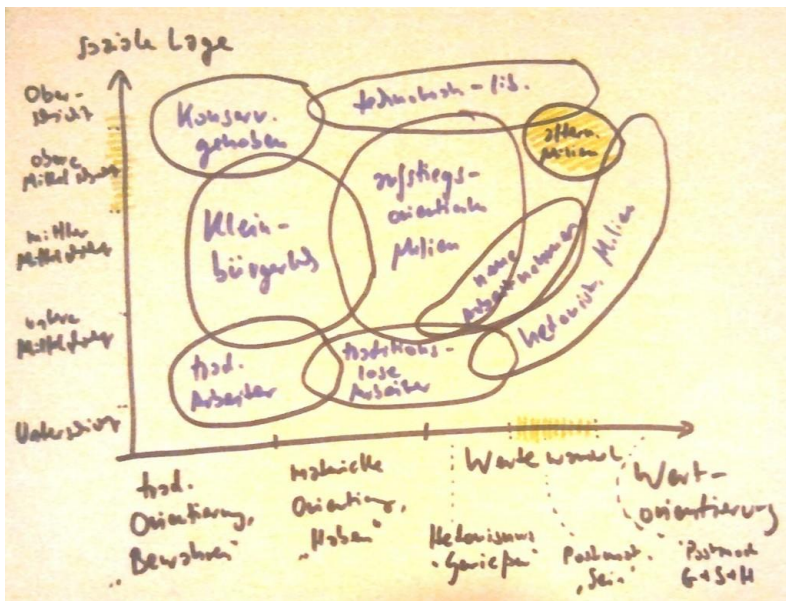 soziale Lage
Ober-
schicht
obere
Mittelschicht
mittlere
Mittelschicht
untere
Mittelschicht
Unterschicht
Konserv.
gehoben
technokrat.-lib.
altern.
Milieu
Klein-
bürgerlich
aufstiegs-
orientiertes
Milieu
neues
Arbeitnehmer
hedonist. Milieu
trad.
Arbeiter
traditions-
lose
Arbeiter
trad.
Orientierung,
„Bewahren"
materielle
Orientierung,
„Haben"
Wertewandel
Hedonismus
„Genießen"
Postmat.
„Sein"
Wert-
orientierung
Postmod.
G+S+H